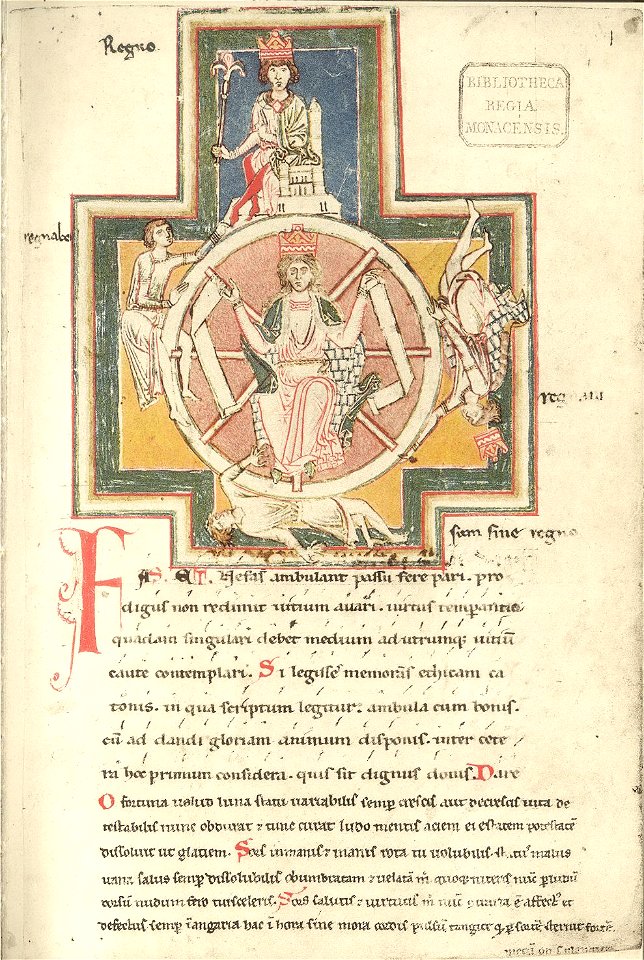 Regno
BIBLIOTHECA
REGIA
MONACENSIS.
regnabo
regnaui
sum sine regno
FAS ET Nefas ambulant passu fere pari. pro
digus non redimit uitium auari. uirtus temperantie
quadam singulari debet medium ad utrumq; uitiū
caute contemplari. Si legisse memoras ethicam ca
tonis. in qua scriptum legitur. ambula cum bonis.
cū ad dandi gloriam animum disponis. inter cete
ra hoc primum considera. quis sit dignus donis. Dare
O fortuna uelud luna statu uariabilis semp crescis aut decrescis uita de
testabilis nunc obdurat & tunc curat ludo mentis aciem egestatem potestatē
dissoluit ut glatiem. Sors inmanis & inanis rota tu uolubilis. status malus
uana salus semp dissolubilis obumbratam & uelatam m quoq; niteris nūc p ludum
dorsum nudum fero tui sceleris. Sors salutis & uirtutis m nūc ē affect' et
defectus semp ī angaria hac ī hora sine mora cordis pulsum tangite sternit fortē